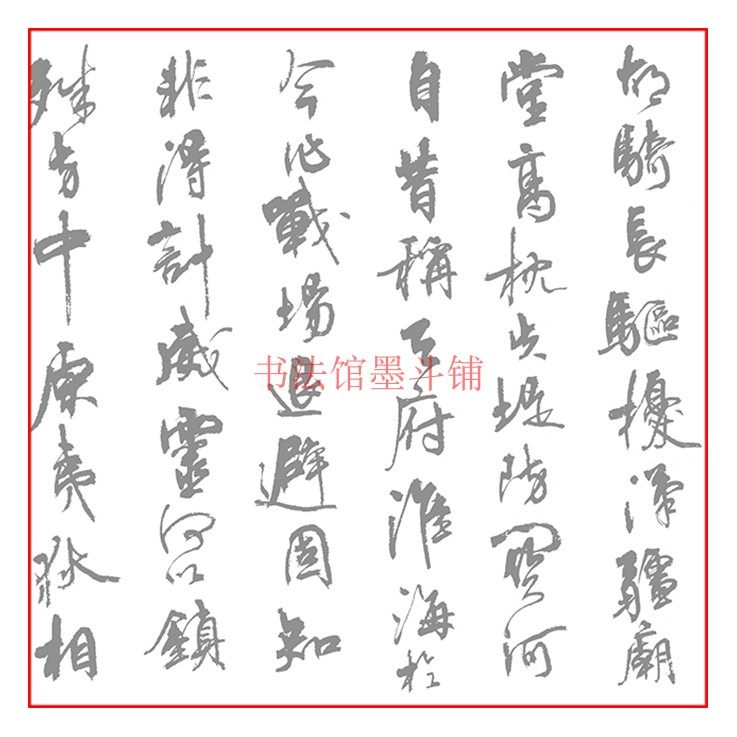 胡騎長驅擾漢疆廟
堂高枕失堤防關河
自昔稱天府淮海於
今作戰場退避固知
非得計威靈何以鎮
殊方中原夷狄相
书法馆墨斗铺